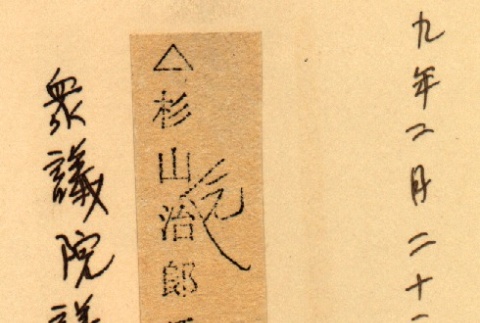 九年二月二十
△杉山治郎
衆議院議